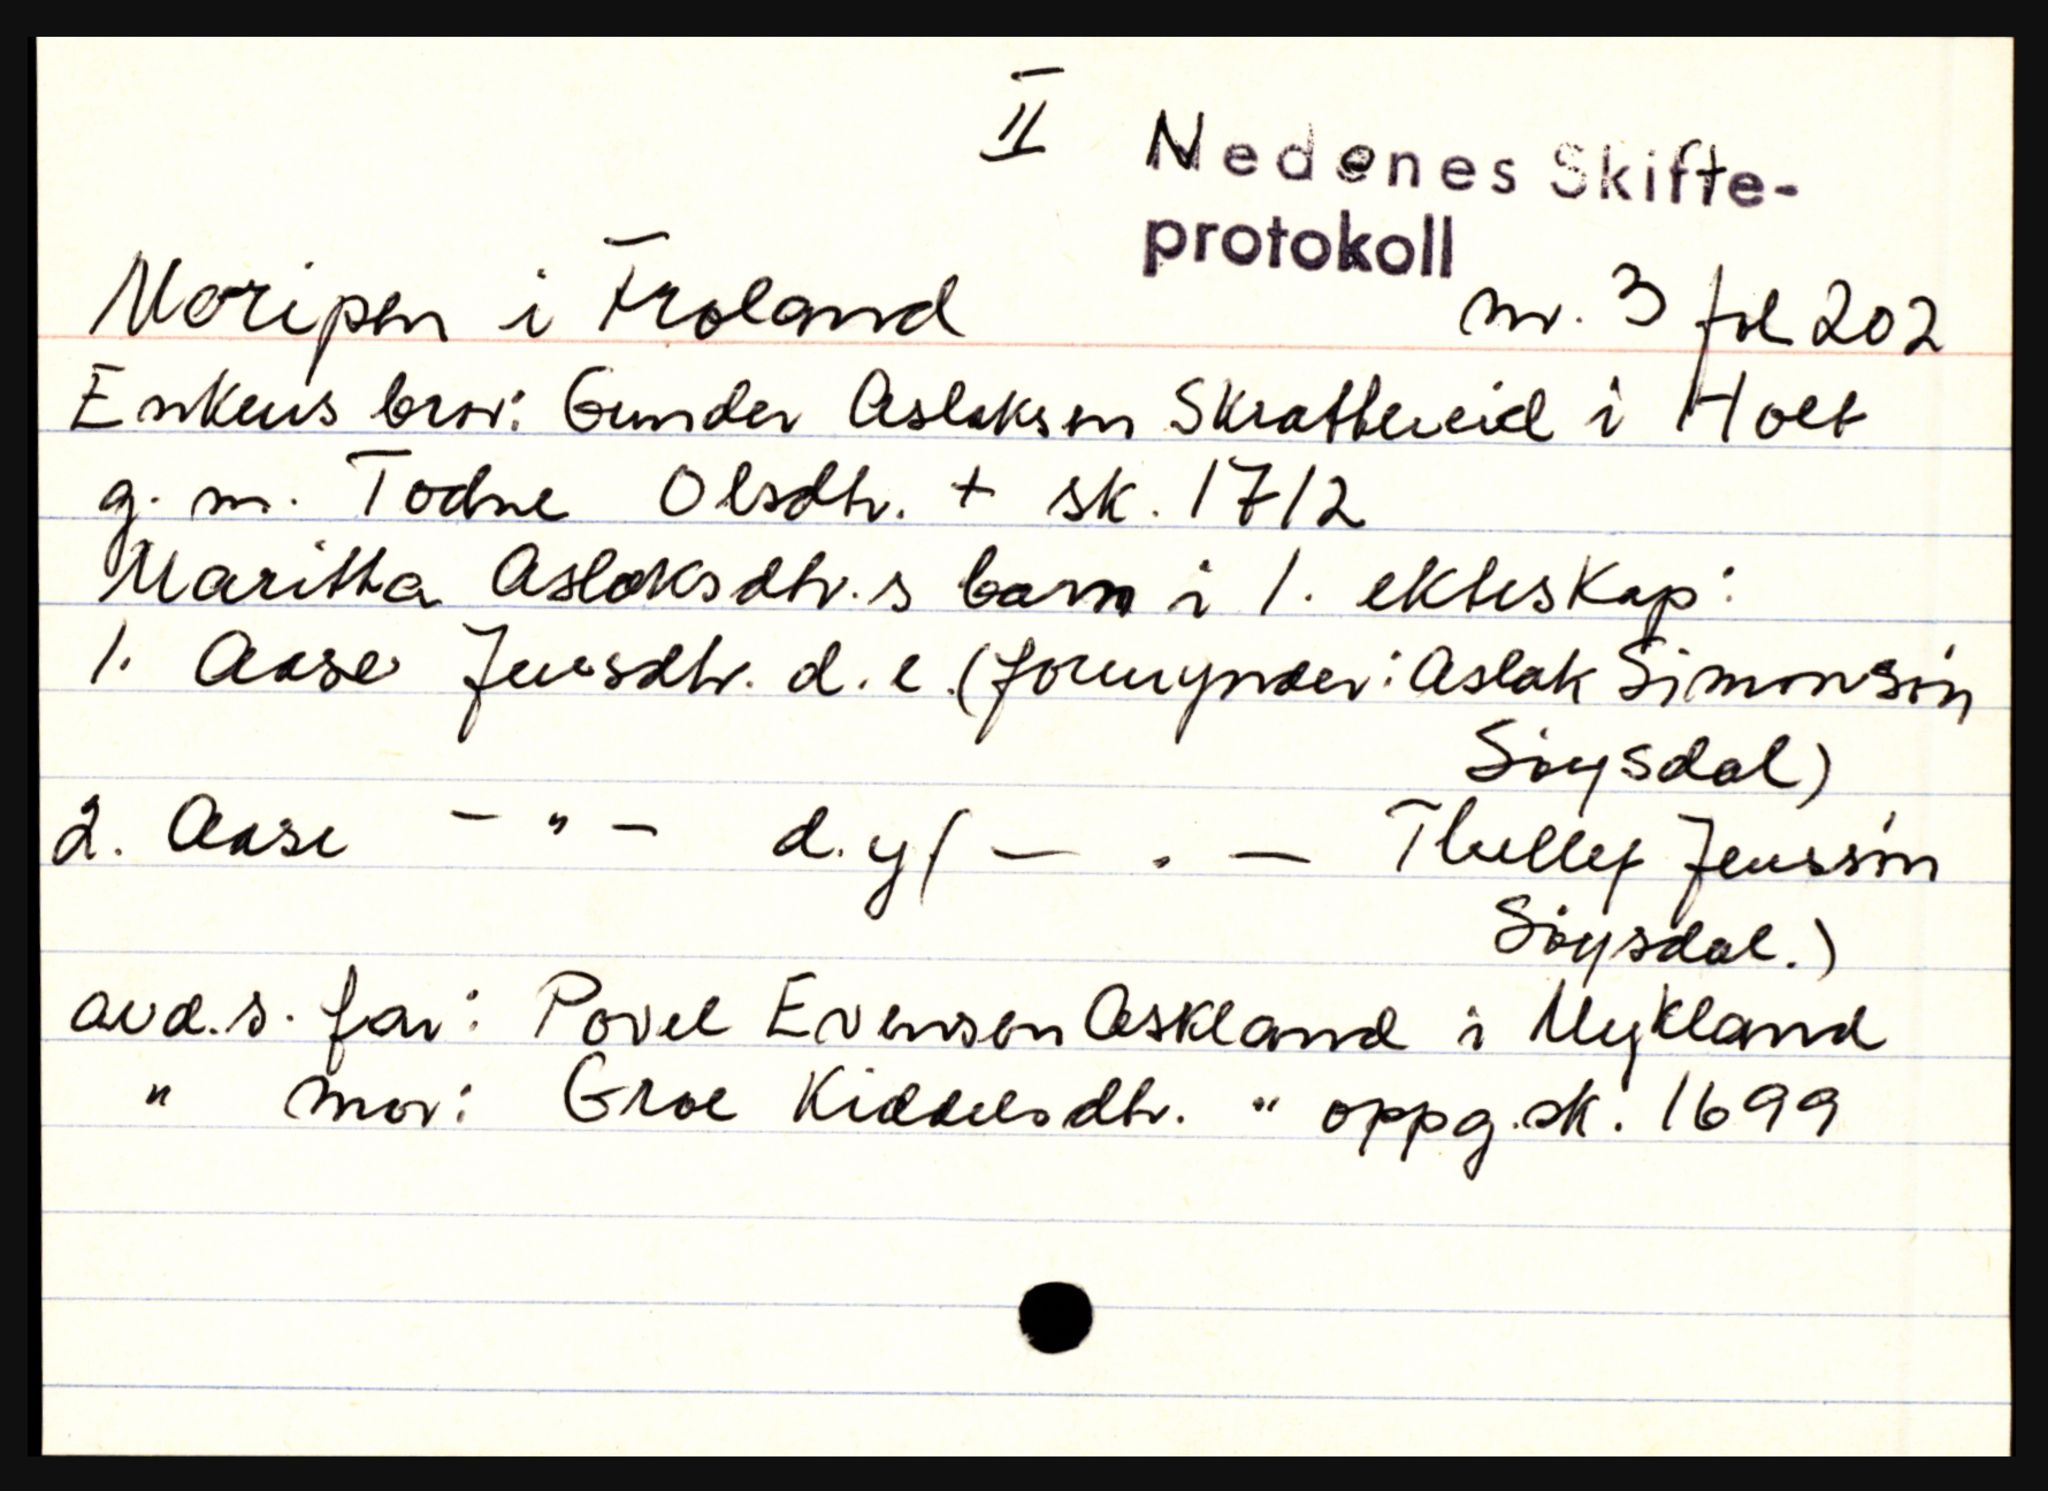 II
Nedenes Skifte-
protokoll
Moripen i Froland nr. 3 fol 202
Enkens bror: Gunder Aslaksen Skrattereid i Holt
g. m. Todne Olsdtr. + sk. 1712
Maritta Aslaksdtr.s barn i 1. ekteskap:
1. Aase Jensdtr. d. e. (formynder: Aslak Simonsøn
Søysdal)
2. Aase - " - d. y ( — . — Thellef Jensøn
Søysdal.)
avd.s. far: Povel Evensen Askland i Mykland
" mor: Groe Kiddelsdtr. " oppg. sk. 1699